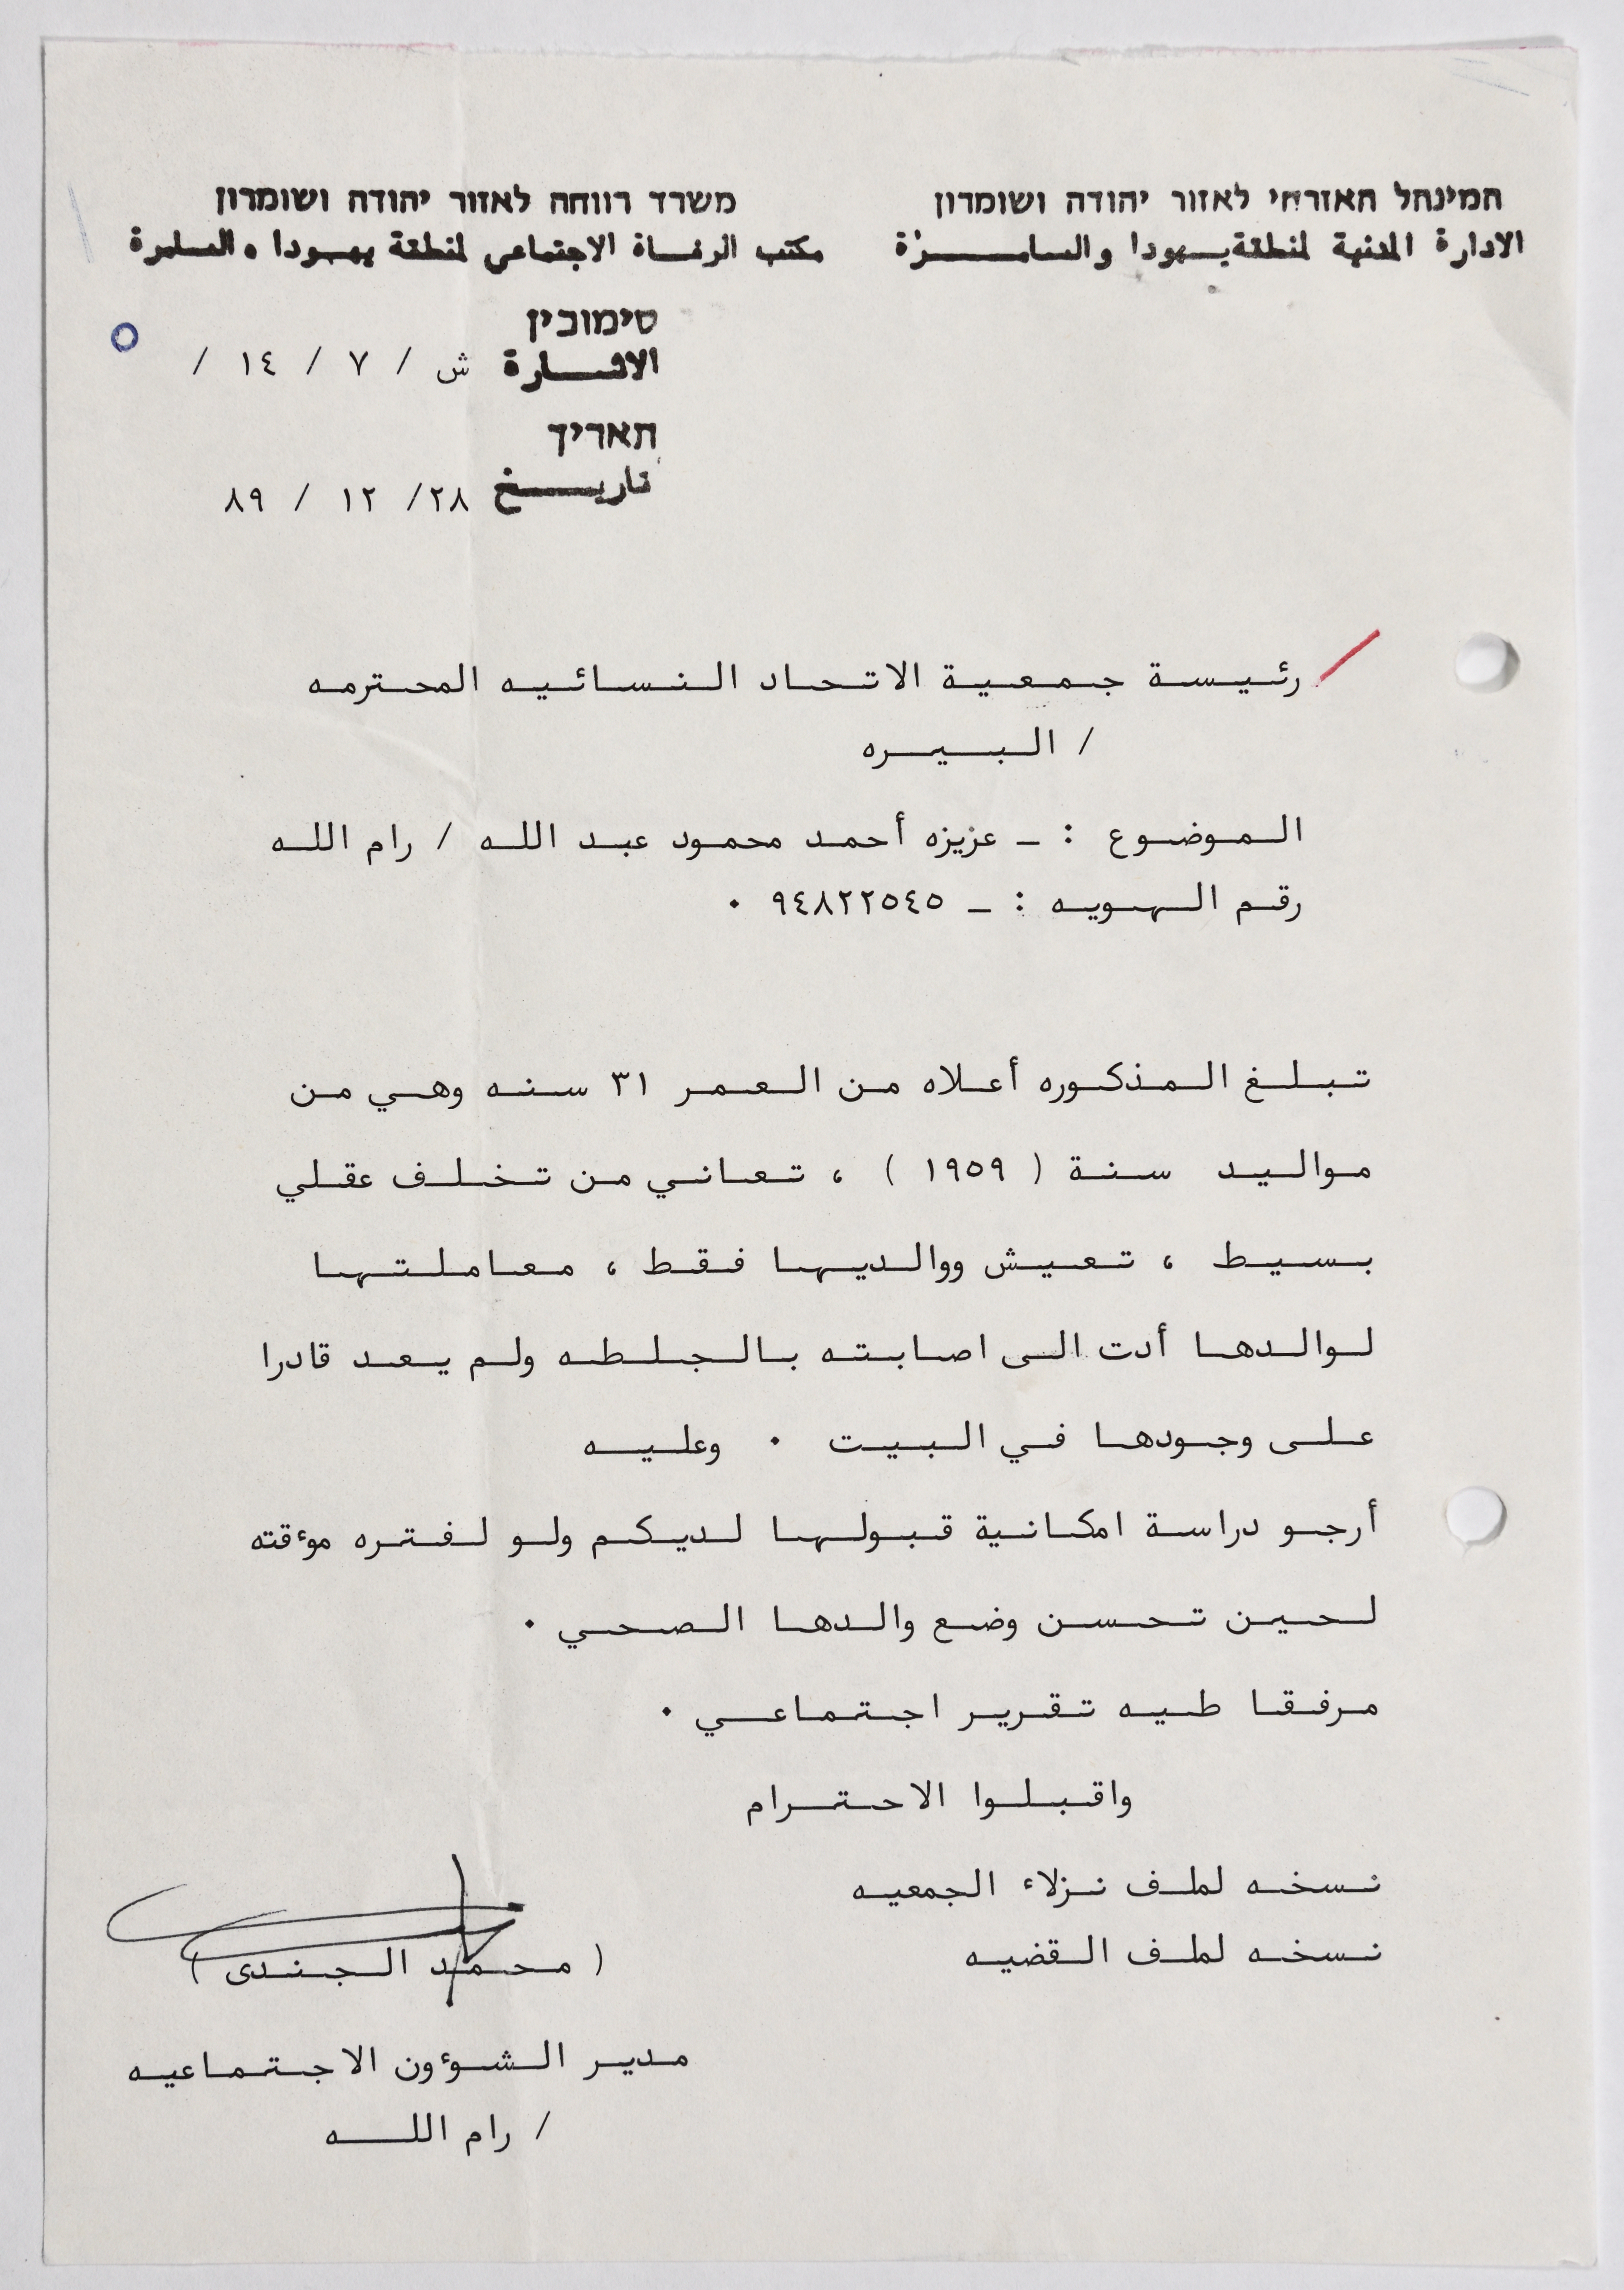 המינהל האזרחי לאזור יהודה ושומרון
الادارة المدنية لمنطقة يهودا والسامرة
משרד רווחה לאזור יהודה ושומרון
مكتب الرفاة الاجتماعي لمنطقة يهودا والسامرة
סימוכין
الاشارة ش / ٧ / ١٤ /
תאריך
تاريخ ٢٨/ ١٢ / ٨٩
رئيسة جمعية الاتحاد النسائيه المحترمه
/ البيره
الموضوع : ـ عزيزه أحمد محمود عبد الله / رام الله
رقم الهويه : ـ ٩٤٨٢٢٥٤٥ ٠
تبلغ المذكوره أعلاه من العمر ٣١ سنه وهي من
مواليد سنة ( ١٩٥٩ ) ، تعاني من تخلف عقلي
بسيط ، تعيش ووالديها فقط ، معاملتها
لوالدها أدت الى اصابته بالجلطه ولم يعد قادرا
على وجودها في البيت ٠ وعليه
أرجو دراسة امكانية قبولها لديكم ولو لفتره موءقته
لحين تحسن وضع والدها الصحي ٠
مرفقا طيه تقرير اجتماعي ٠
واقبلوا الاحترام
نسخه لملف نزلاء الجمعيه
نسخه لملف القضيه
( محمد الجندى )
مدير الشوءون الاجتماعيه
/ رام الله